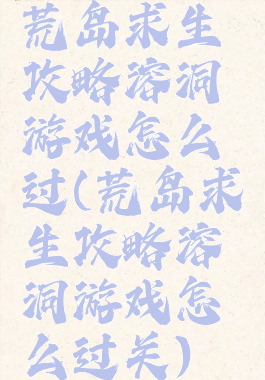 荒岛求生
攻略溶洞
游戏怎么
过(荒岛求
生攻略溶
洞游戏怎
么过关)